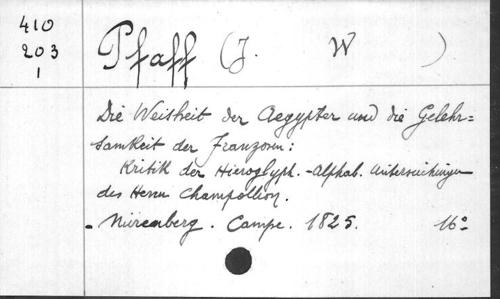 410
203
1
Pfaff (J. W )
Die Weisheit der Aegypter und die Gelehr=
samkeit der Franzosen:
Kritik der Hieroglyph.-Alphab. Untersuchungen
des Herrn Champollion.
Nürenberg. Campe. 1825. 16°